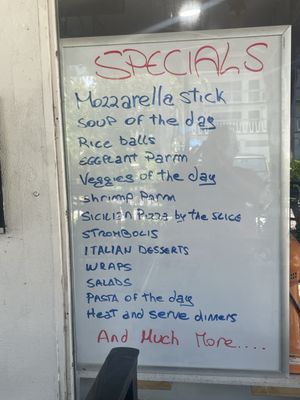 SPECIALS
Mozzarella stick
Soup of the day
Rice balls
EGGPlant Parm
Veggies of the day
Shrimp Parm
Sicilian Pizza by the slice
STROMBOLIS
ITALIAN DESSERTS
WRAPS
SALADS
PASTA of the day
Heat and serve dinners
And Much More....